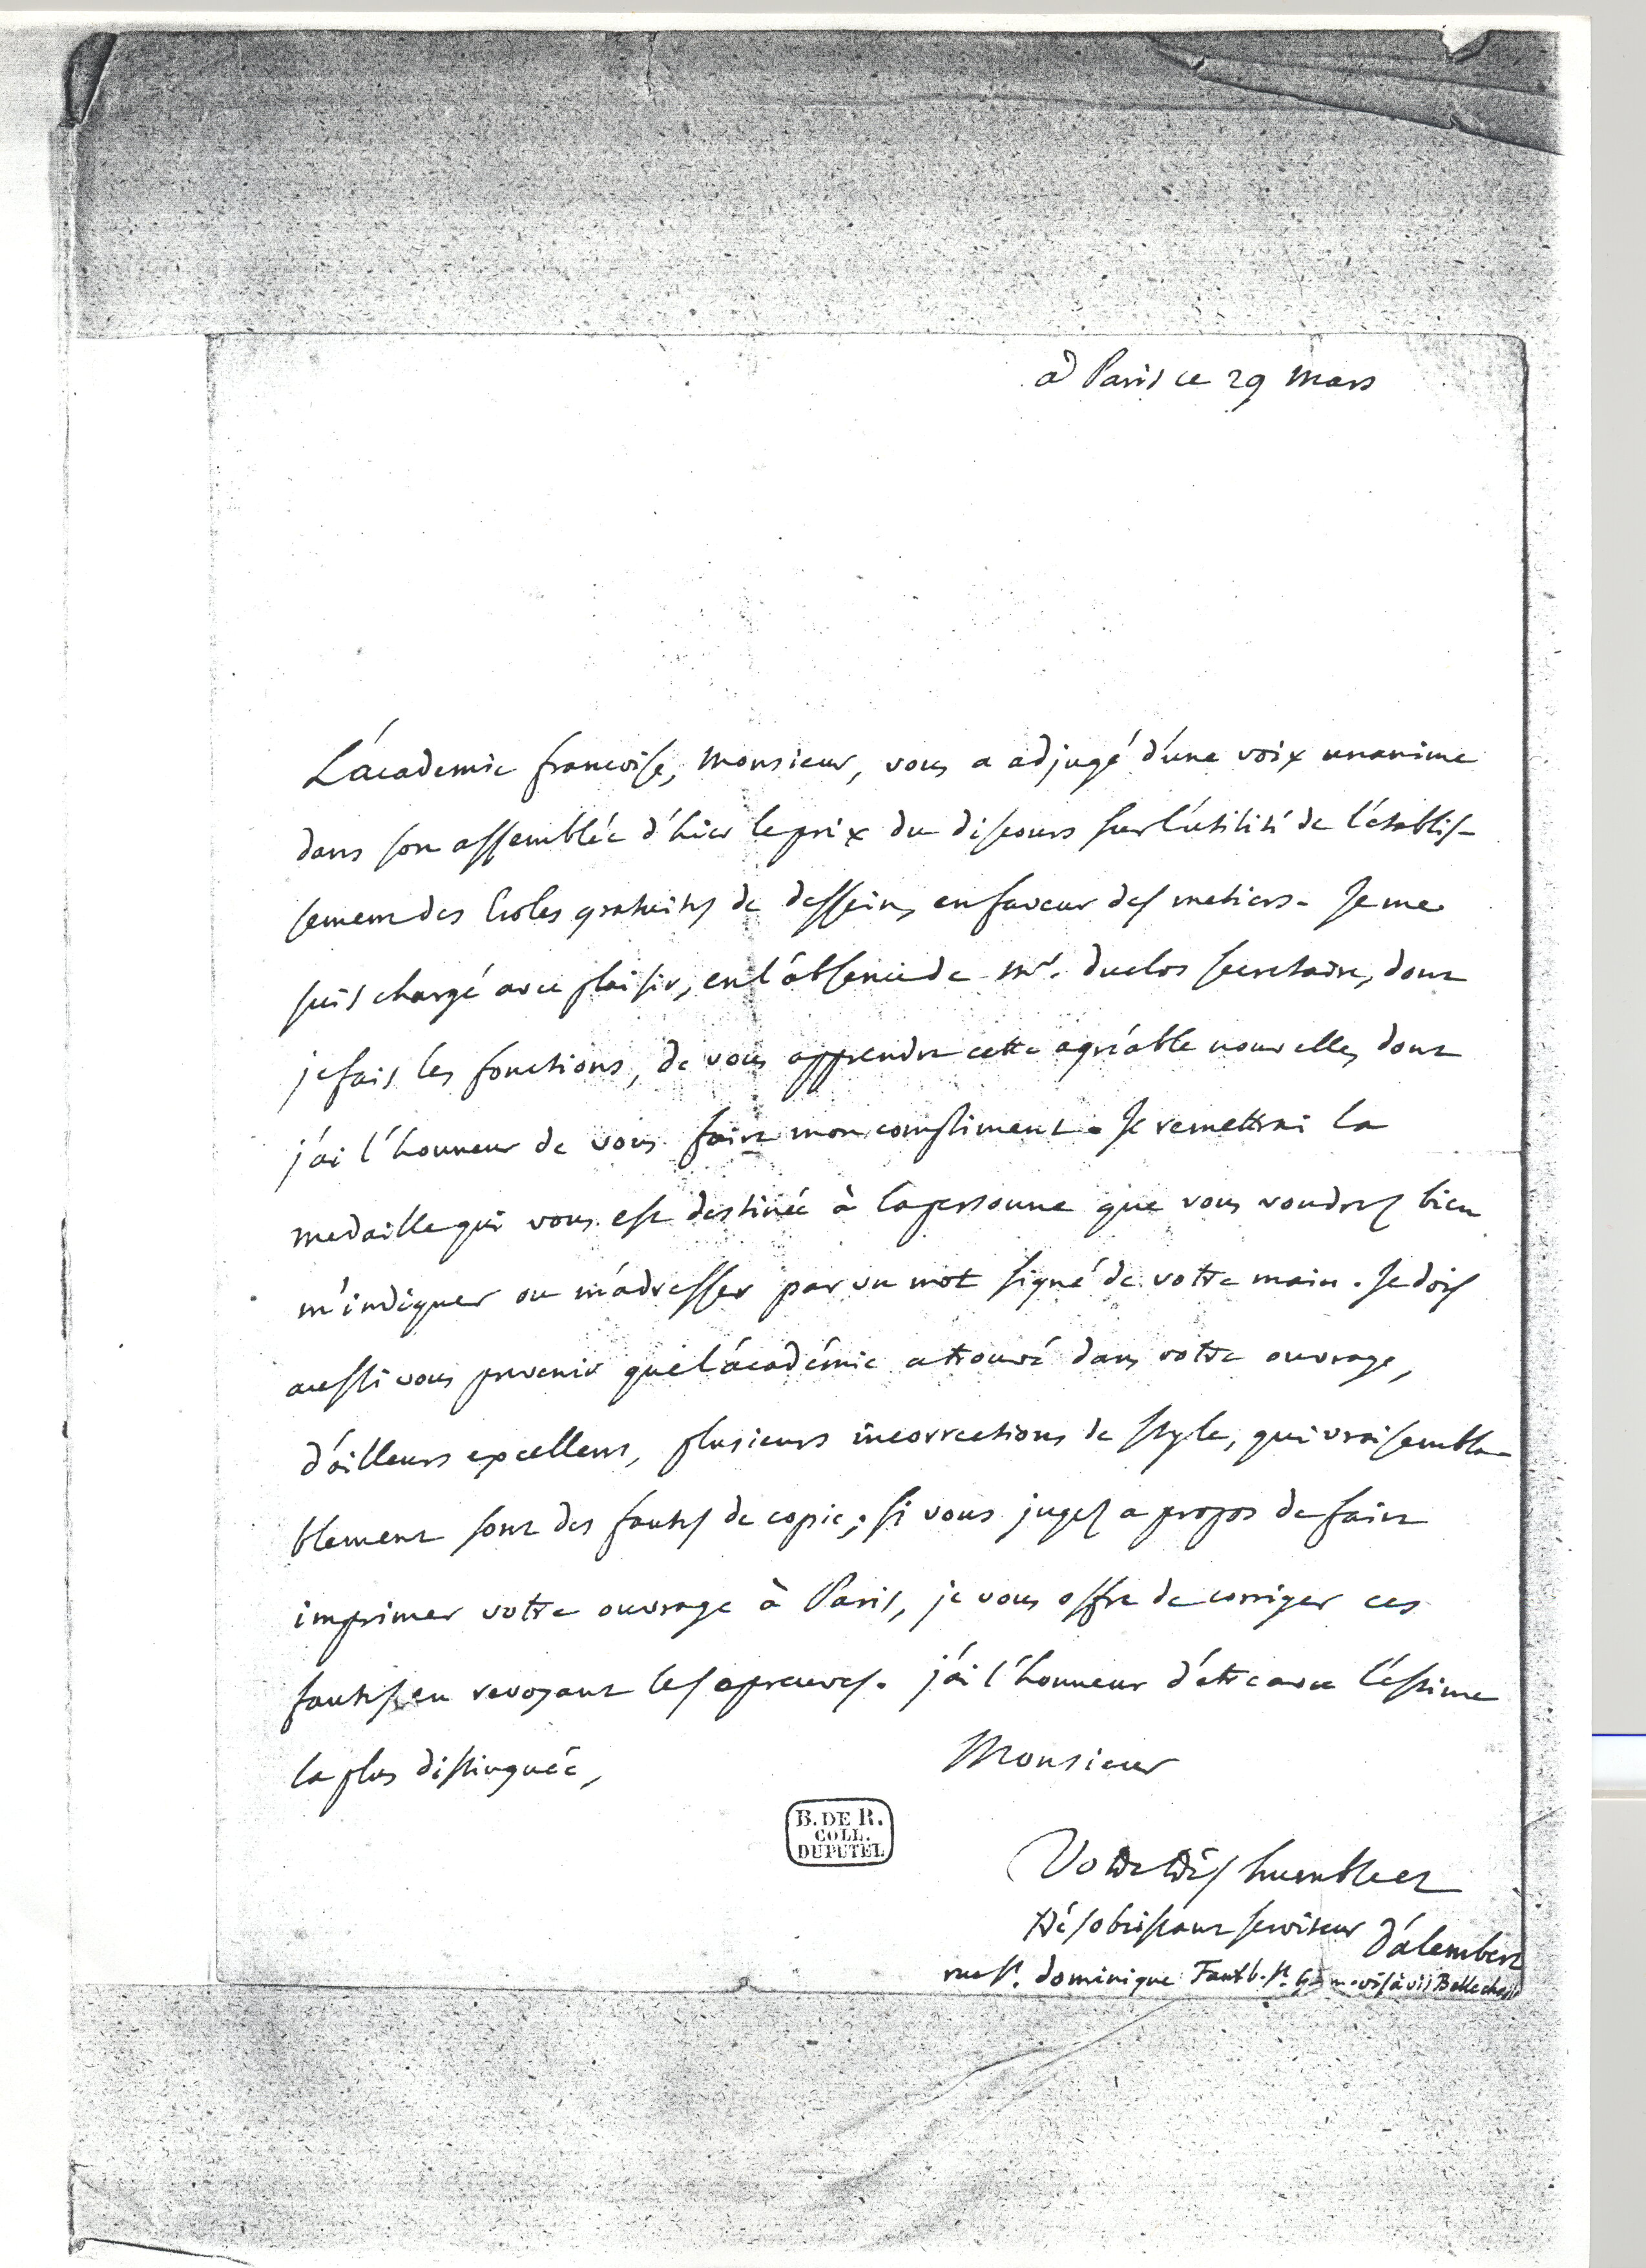 à Paris ce 29 mars
L'academie francoise, Monsieur, vous a adjugé d'une voix unanime
dans son assemblée d'hier le prix du discours sur l'utilité de l'établis-
sement des Ecoles gratuites de desseins en faveur des metiers. Je me
suis chargé avec plaisir, en l'absence de Mr. duclos secretaire, dont
je fais les fonctions, de vous apprendre cette agréable nouvelle, dont
j'ai l'honneur de vous faire mon compliment. Je remettrai la
medaille qui vous est destinée à la personne que vous voudrez bien
m'indiquer ou m'adresser par un mot signé de votre main. Je dois
aussi vous prevenir que l'académie a trouvé dans votre ouvrage,
d'ailleurs excellent, plusieurs incorrections de style, qui vraisembla-
blement sont des fautes de copie; si vous jugez a propos de faire
imprimer votre ouvrage à Paris, je vous offre de corriger ces
fautes en revoyant les epreuves. j'ai l'honneur d'etre avec l'estime
la plus distinguée,
Monsieur
B. DE R.
COLL.
DUPUTEL
Votre très humble et
très obeissant serviteur D'alembert
rue St. dominique Fautb. St. Germ. vis à vis Bellechasse